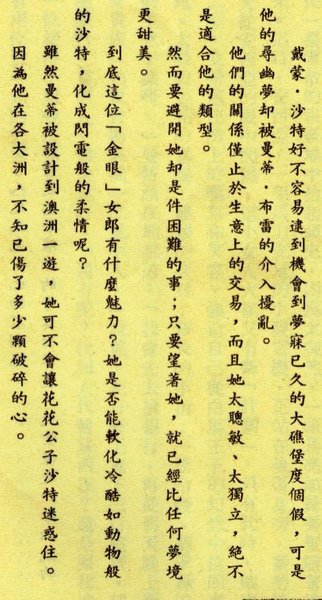 戴蒙．沙特好不容易逮到機會到夢寐已久的大礁堡度個假，可是
他的尋幽夢却被曼蒂．布雷的介入擾亂。
他們的關係僅止於生意上的交易，而且她太聰敏、太獨立，絕不
是適合他的類型。
然而要避開她却是件困難的事；只要望著她，就已經比任何夢境
更甜美。
到底這位「金眼」女郎有什麼魅力？她是否能軟化冷酷如動物般
的沙特，化成閃電般的柔情呢？
雖然曼蒂被設計到澳洲一遊，她可不會讓花花公子沙特迷惑住。
因為他在各大洲，不知已傷了多少顆破碎的心。